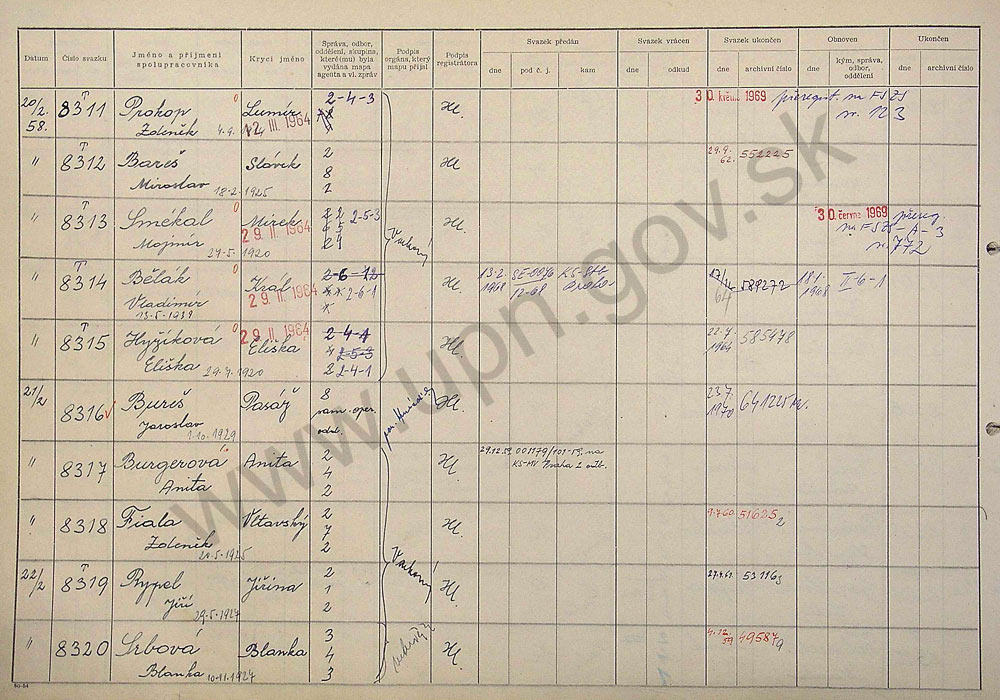 Datum
Číslo svazku
Jméno a příjmení spolupracovníka
Krycí jméno
Správa, odbor, oddělení, skupina, které(mu) byla vydána mapa agenta a vl. zpráv
Podpis orgánu, který mapu přijal
Podpis registrátora
Svazek předán
dne
pod č. j.
kam
Svazek vrácen
dne
odkud
Svazek ukončen
dne
archivní číslo
Obnoven
dne
kým, správa, odbor, oddělení
Ukončen
dne
archivní číslo
20/2. 58. 8311 Prokop Lumír 2-4-3 30. květ. 1969 přeregistr. na FSZS
Zdeněk 12. III. 1964
" 8312 Bareš Slávek 2 29.9. 62. 552225
Miroslav 18.2.1925 8
2
" 8313 Smékal Mirek 2 2 2-5-3 30. června 1969 přereg.
Mojmír 29. II. 1964 6 5 na FSZS-A-3
24.5.1920 24 772
" 8314 Bělák Král 2-6-12 13.2. 1968 SE-0076 12-68 589272 18.1. 1968 II-6-1
Vladimír 29. II. 1964 2-6-1
13.5.1939
" 8315 Hyžíková 29. II. 1964 2-4-1 585478
Eliška Eliška 4 2-5-3
29.7.1920 2 2-4-1
21/2 8316 Bureš Pasáž 8 1970 641225
Jaroslav sam. oper.
1.10.1929 odd.
" 8317 Burgerová Anita 2 29.12.59. na
Anita 4 KS-MV Praha
2
" 8318 Fiala Vltavský 2 51625
Zdeněk 7 2
21.5.1925 2
22/2 8319 Rypel Jiřina 2 53116
Jiří 1 3
29.5.1927 2
" 8320 Srbová Blanka 3 4.12. 59 49587
Blanka 10.11.1927 4
3
www.upn.gov.sk